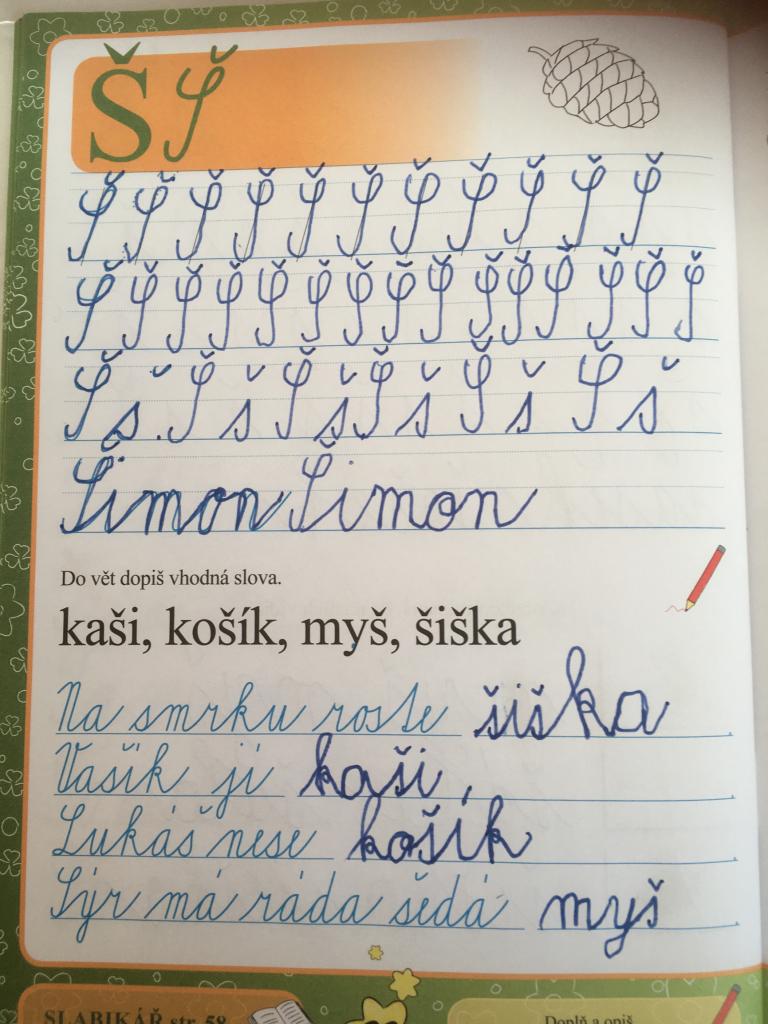 Š Š
Š Š Š Š Š Š Š Š Š Š Š
Š Š Š Š Š Š Š Š Š Š Š Š Š Š Š
Š š Š š Š š Š š Š š Š š
Šimon Šimon
Do vět dopiš vhodná slova.
kaši, košík, myš, šiška
Na smrku roste šiška
Vašík jí kaši,
Lukáš nese košík
Sýr má ráda šedá myš
SLABIKÁŘ str. 58
Doplň a opiš